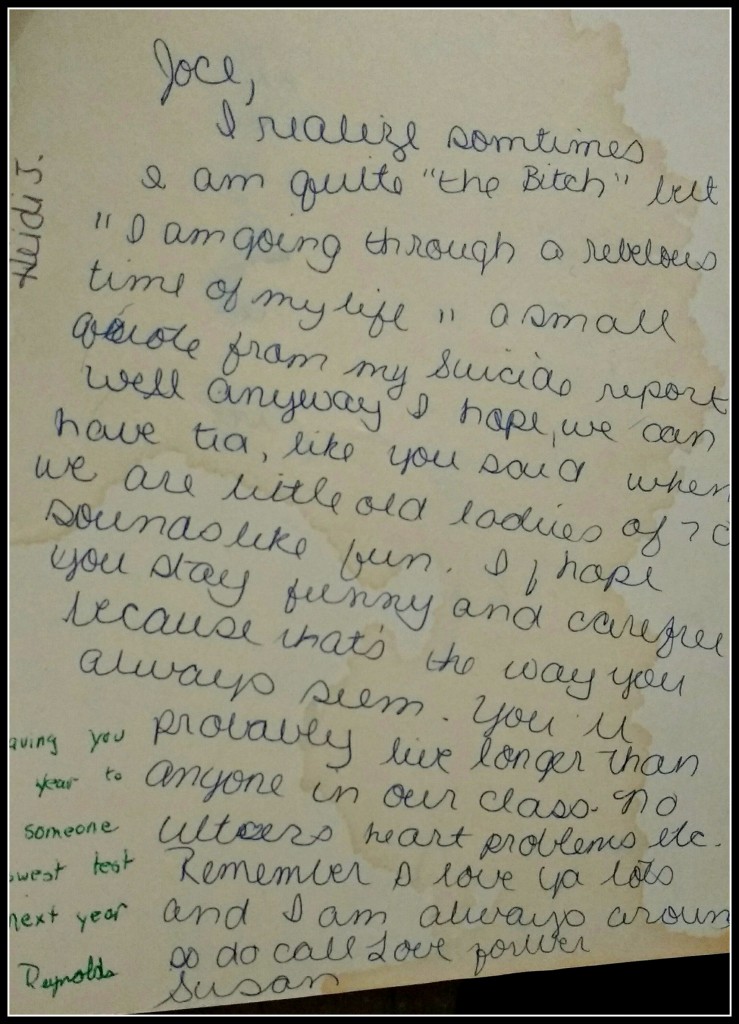 Joce,
I realize somtimes
I am quite "the Bitch" but
" I am going through a rebelous
time of my life " a small
quote from my suicide report
well anyway I hope, we can
have tea, like you said when
we are little old ladies of 70
sounds like fun. I hope
you stay funny and carefree
because that's the way you
always seem. You'll
probably live longer than
anyone in our class. No
ulcers heart problems etc.
Remember I love ya lots
and I am always aroun
so do call Love forever
Susan
Heidi J.
aving you
year to
someone
owest test
next year
Reynolds